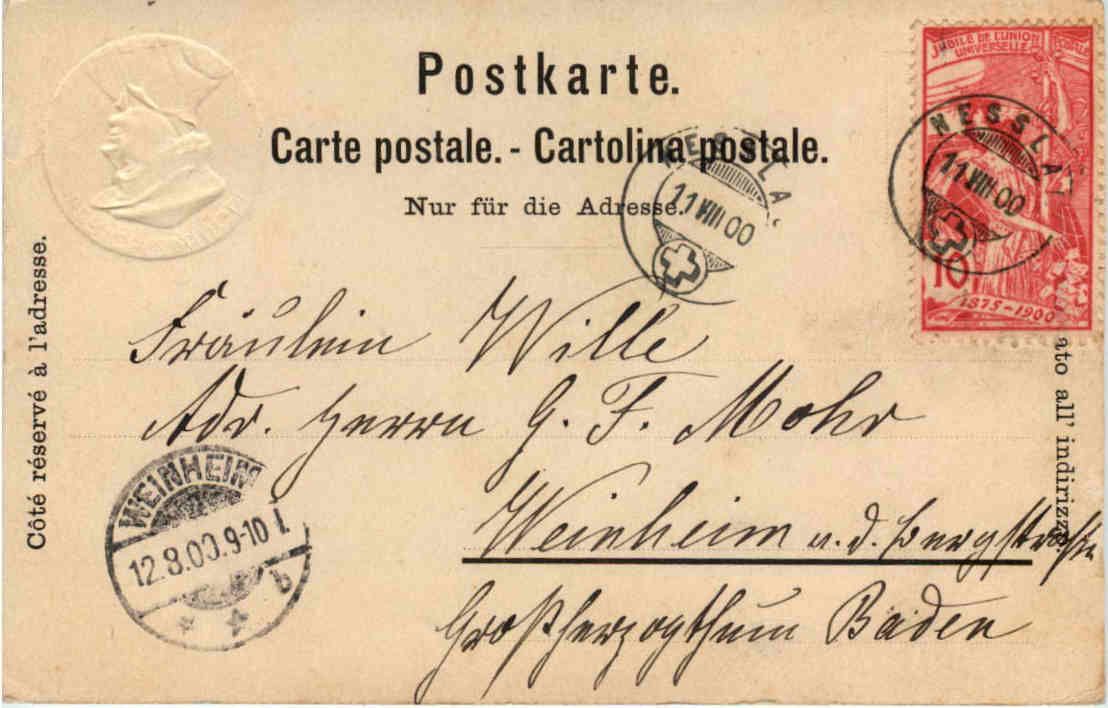 Postkarte.
Carte postale. - Cartolina postale.
Nur für die Adresse.
JUBILÉ DE L'UNION
UNIVERSELLE
10
1875-1900
NESSLA
11 VIII 00
NESSLA
11 VIII 00
Côté réservé à l'adresse.
ato all' indirizzo
Fräulein Wille
Adr. Herrn G. F. Mohr
Weinheim a. d. Bergstraße
Großherzogthum Baden
WEINHEIM
12.8.00.9-10
b